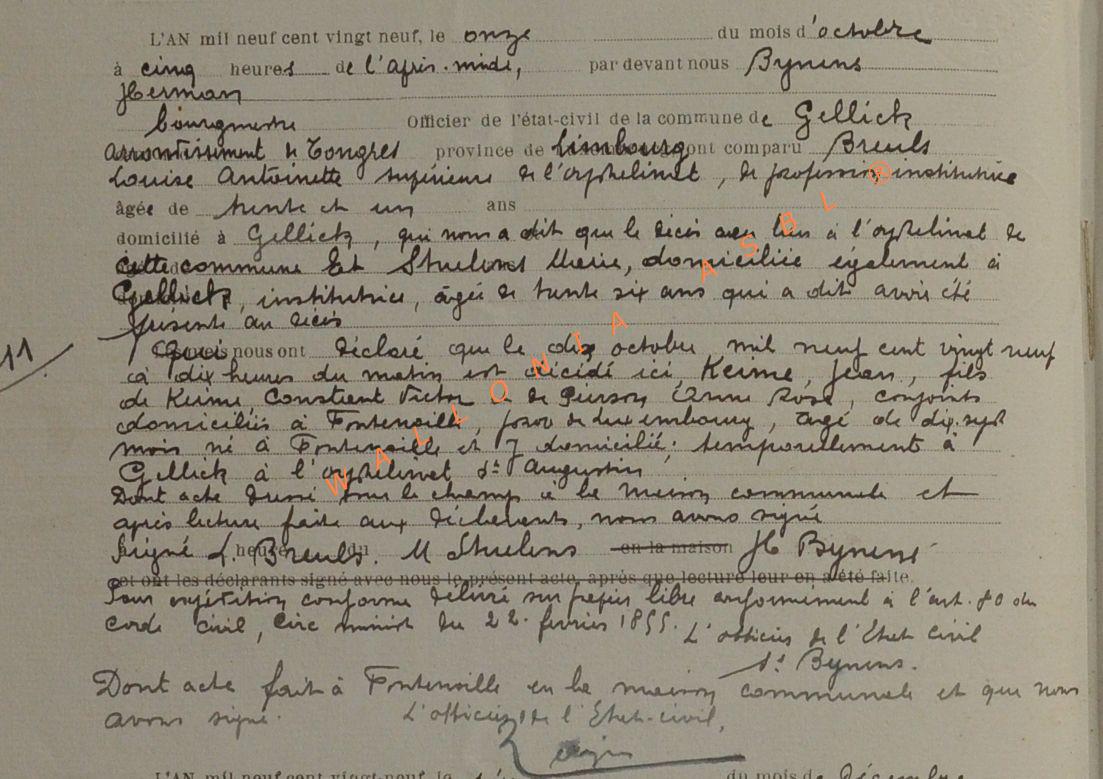 L'AN mil neuf cent vingt neuf, le onze du mois d'octobre
à cinq heures de l'après-midi, par devant nous Bynens
Herman
bourgmestre Officier de l'état-civil de la commune de Gellick
arrondissement de Tongres province de Limbourg ont comparu Breuls
Louise Antoinette supérieure de l'orphelinat, de profession institutrice
âgée de trente et un ans
domicilié à Gellick, qui nous a dit que le décès a eu lieu à l'orphelinat de
cette commune Et Stuelens Marie, domiciliée également à
Gellick, institutrice, âgée de trente six ans qui a dit avoir été
présente au décès
11
nous ont déclaré que le dix octobre mil neuf cent vingt neuf
à dix heures du matin est décédé ici, Keime, Jean, fils
de Keime Constient Victor et de Pierson Anne Rose, conjoints
domiciliés à Fontenoille, prov de Luxembourg, âgé de dix-sept
mois né à Fontenoille et y domicilié; temporellement à
Gellick à l'orphelinat St Augustin
Dont acte dressé sur le champ à la maison communale et
après lecture faite aux déclarants, nous avons signé
Signé L. heure Breuls. du M Stuelens en la maison H Bynens
et ont les déclarants signé avec nous le présent acte, après que lecture leur en a été faite.
Pour expédition conforme délivré sur papier libre conformément à l'art. 80 du
code civil, Circ minist du 22 février 1855. L'officier de l'Etat Civil
St Bynens.
Dont acte fait à Fontenoille en la maison communale et que nous
avons signé. L'officier de l'Etat-civil,
L'AN mil neuf cent vingt-neuf, le du mois de Décembre
WALLONIA ASBL ®